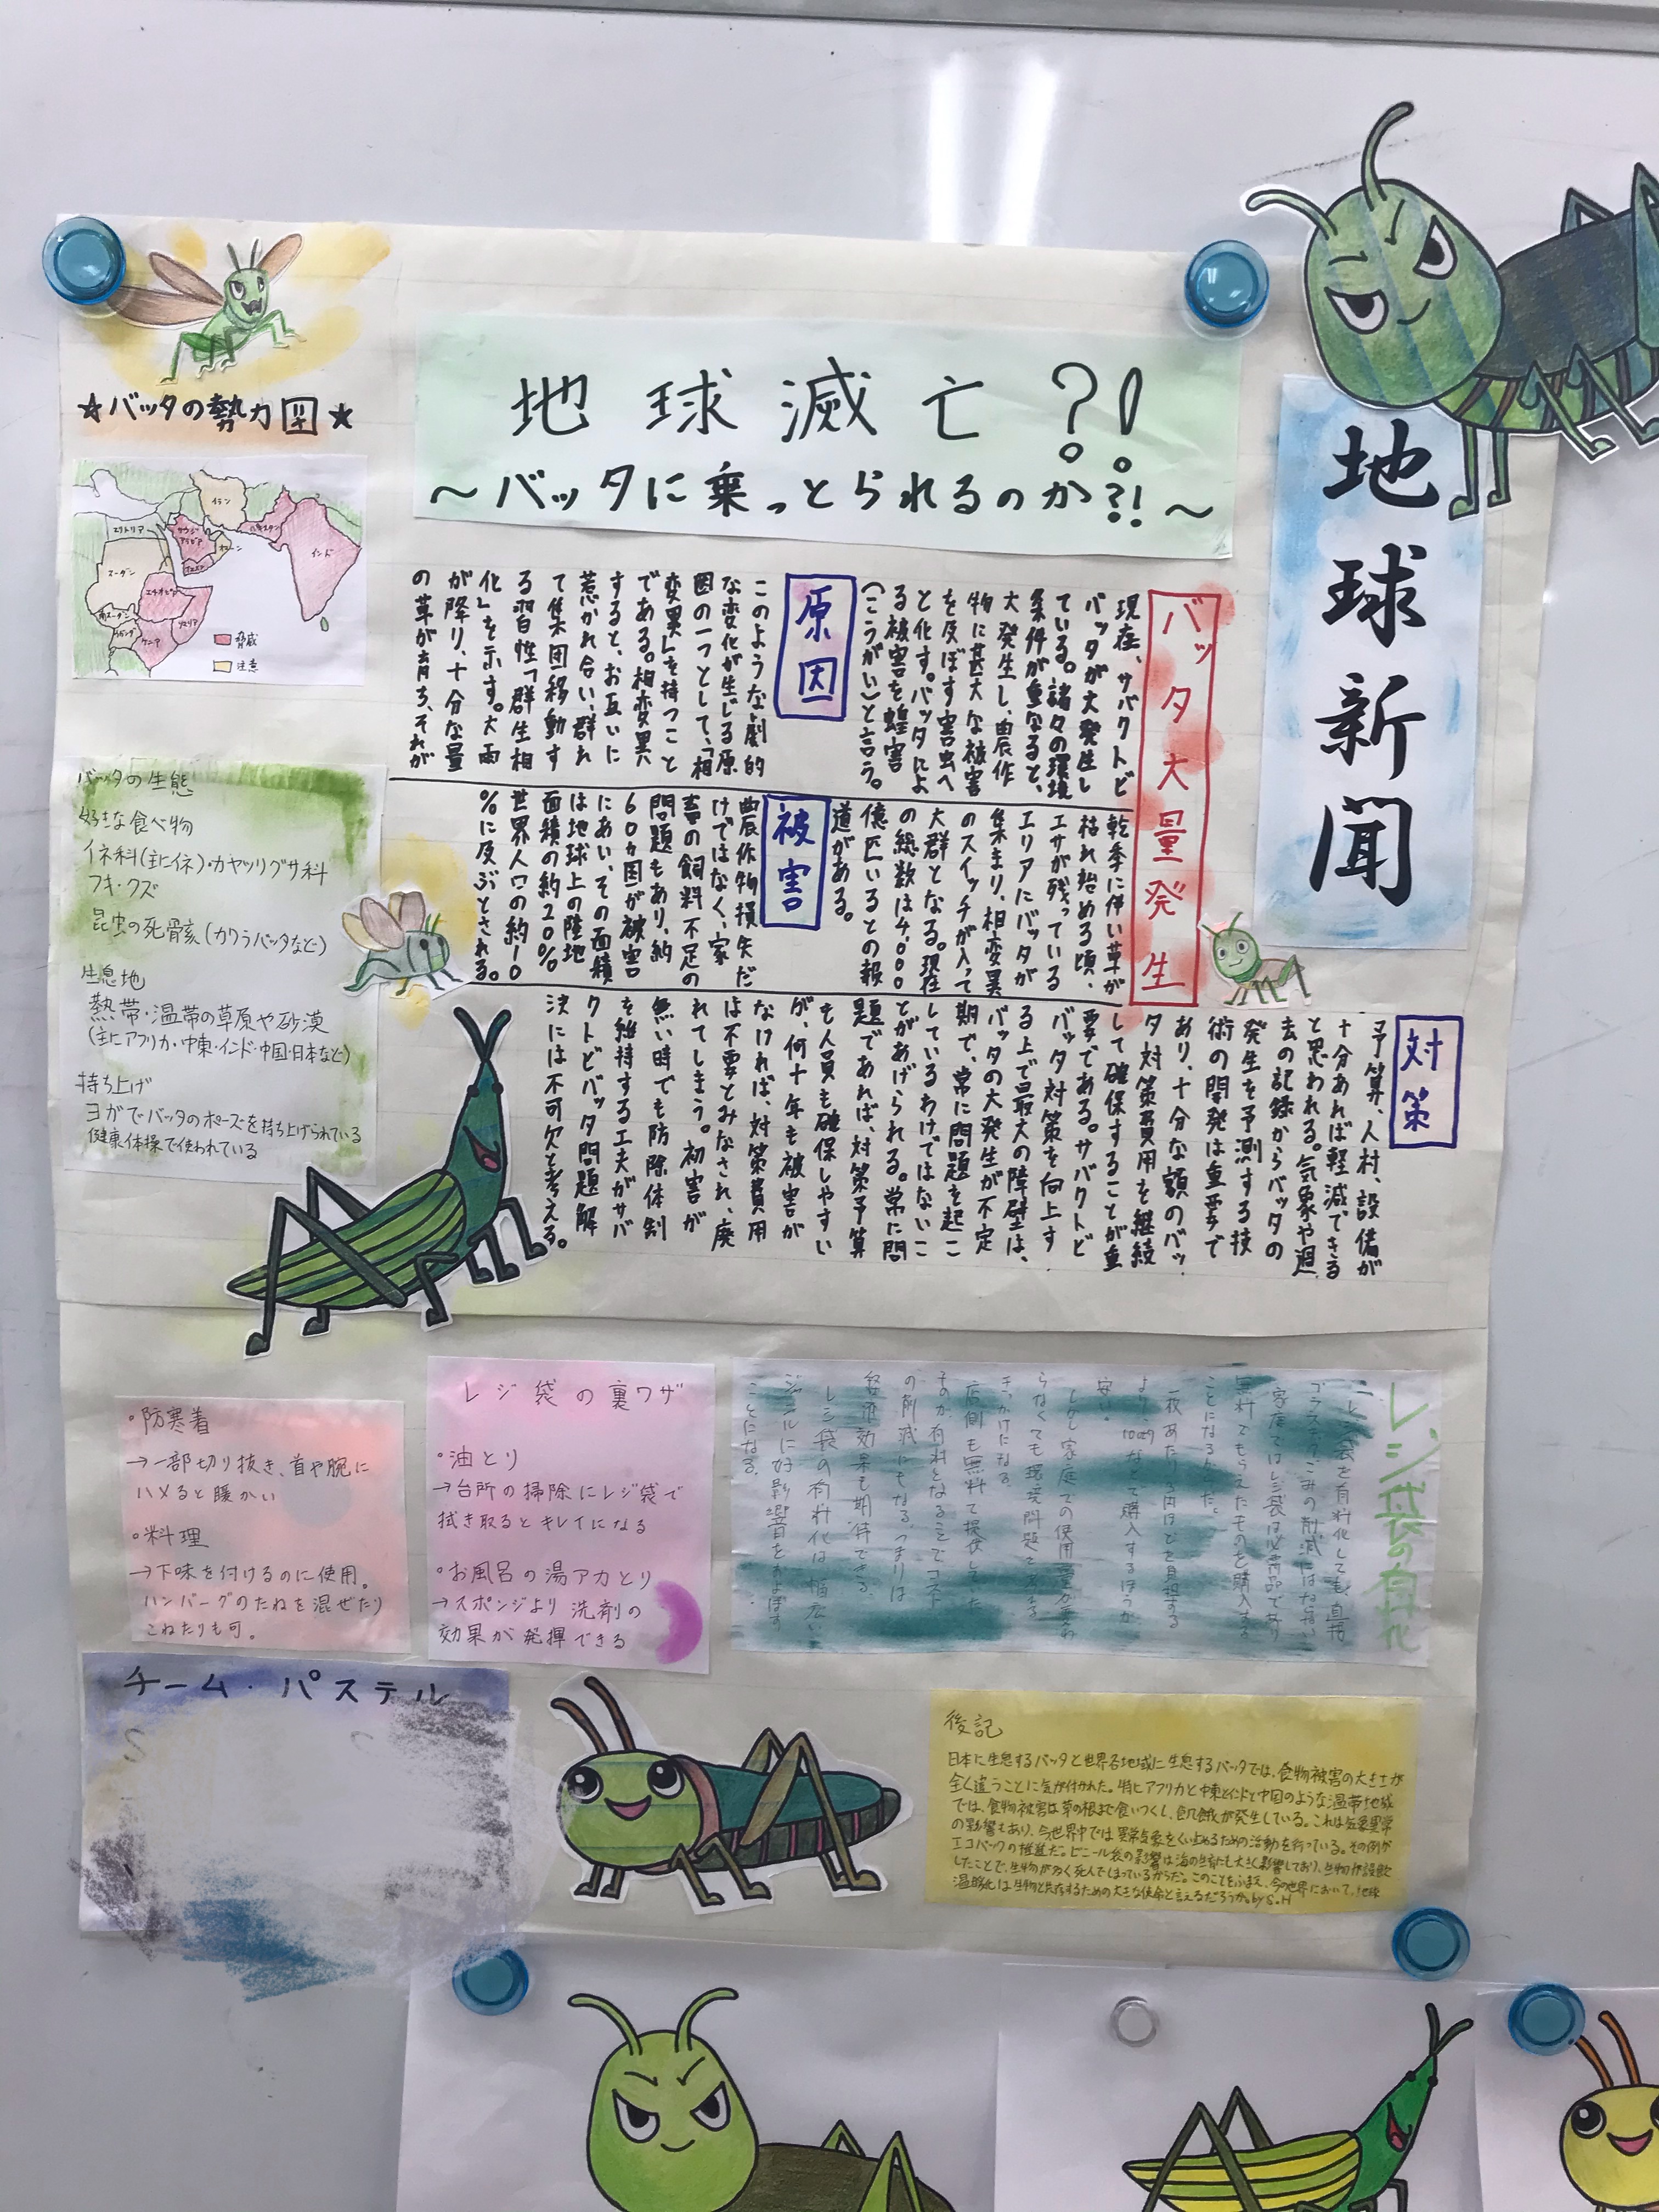 地球新聞
地球滅亡?!
～バッタに乗っとられるのか?!～
バッタ大量発生
現在、サバクトビ
バッタが大発生し
ている。諸々の環境
条件が重なると、
大発生し、農作
物に甚大な被害
を及ぼす害虫へ
と化す。バッタによ
る被害を蝗害
(こうがい)と言う。
原因
このような劇的
な変化が生じる原
因の一つとして、「相
変異」を持つこと
である。相変異
すると、お互いに
惹かれ合い、群れ
て集団移動す
る習性「群生相
化」を示す。大雨
が降り、十分な量
の草が育ち、それが
乾季に伴い草が
枯れ始める頃、
エサが残っている
エリアにバッタが
集まり、相変異
のスイッチが入って
大群となる。現在
の総数は4,000
億匹いるとの報
道がある。
被害
農作物損失だ
けではなく、家
畜の飼料不足の
問題もあり、約
60カ国が被害
にあい、その面積
は地球上の陸地
面積の約20%
世界人口の約10
%に及ぶとされる。
対策
予算、人材、設備が
十分あれば軽減できる
と思われる。気象や過
去の記録からバッタの
発生を予測する技
術の開発は重要で
あり、十分な額のバッ
タ対策費用を継続
して確保することが重
要である。サバクトビ
バッタ対策を向上す
る上で最大の障壁は、
バッタの大発生が不定
期で、常に問題を起こ
しているわけではないこ
とがあげられる。常に問
題であれば、対策予算
も人員も確保しやすい
が、何十年も被害が
なければ、対策費用
は不要とみなされ、廃
れてしまう。初害が
無い時でも防除体制
を維持する工夫がサバ
クトビバッタ問題解
決には不可欠と考える。
☆バッタの勢力図☆
イラン
エリトリア
サウジ
アラビア
オマーン
パキスタン
インド
イエメン
スーダン
エチオピア
南スーダン
ソマリア
ウガンダ
ケニア
脅威
注意
バッタの生態
好きな食べ物
イネ科(主にイネ)・カヤツリグサ科
フキ・クズ
昆虫の死骸(カワラバッタなど)
生息地
熱帯・温帯の草原や砂漠
(主にアフリカ・中東・インド・中国・日本など)
持ち上げ
ヨガでバッタのポーズを持ち上げられている
健康体操で使われている
レジ袋の
レジ袋を有料化しても、直接
プラスチックごみの削減にはならない
家庭ではレジ袋は必需品であり
無料でもらえたものを購入する
ことになるからだ。
一枚あたり3円ほどを負担する
より、100円などで購入するほうが
安い。
しかし家庭での使用量が変わ
らなくても環境問題を考える
きっかけになる。
店側も無料で提供していた
ものが有料となることでコスト
の削減にもなる。つまりは
経済効果も期待できる。
レジ袋の有料化は幅広い
ジャンルに好影響をおよぼす
ことになる。
レジ袋の裏ワザ
・油とり
→台所の掃除にレジ袋で
拭き取るとキレイになる
・お風呂の湯アカとり
→スポンジより洗剤の
効果が発揮できる
・防寒着
→一部切り抜き、首や腕に
ハメると暖かい
・料理
→下味を付けるのに使用。
ハンバーグのたねを混ぜたり
こねたりも可。
チーム・パステル
後記
日本に生息するバッタと世界各地域に生息するバッタでは、食物被害の大きさが
全く違うことに気が付かれた。特にアフリカと中東とインドと中国のような温帯地域
では、食物被害は草の根まで食いつくし、飢餓が発生している。これは気象異常
の影響もあり、今世界中では異常気象をくい止めるための活動を行っている。その例が
エコバックの推進だ。ビニール袋の影響は海の生態にも大きく影響しており、生物が誤飲
したことで、生物が多く死んでしまっているからだ。このことをふまえ、今の世界において、地球
温暖化は生物と共存するための大きな使命と言えるだろうか。by S.H